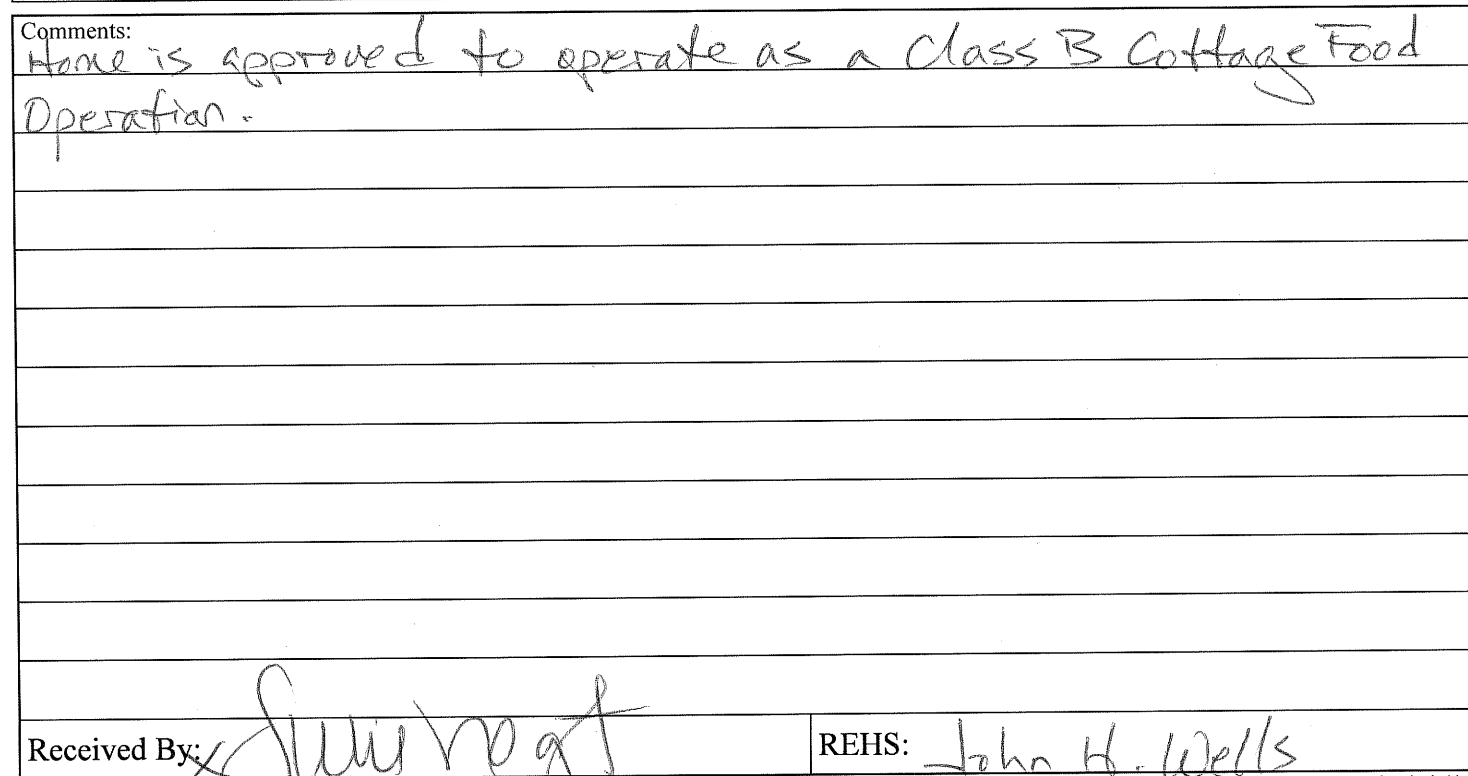 Comments:
Home is approved to operate as a Class B Cottage Food
Operation.
Received By: x
REHS: John H. Wells